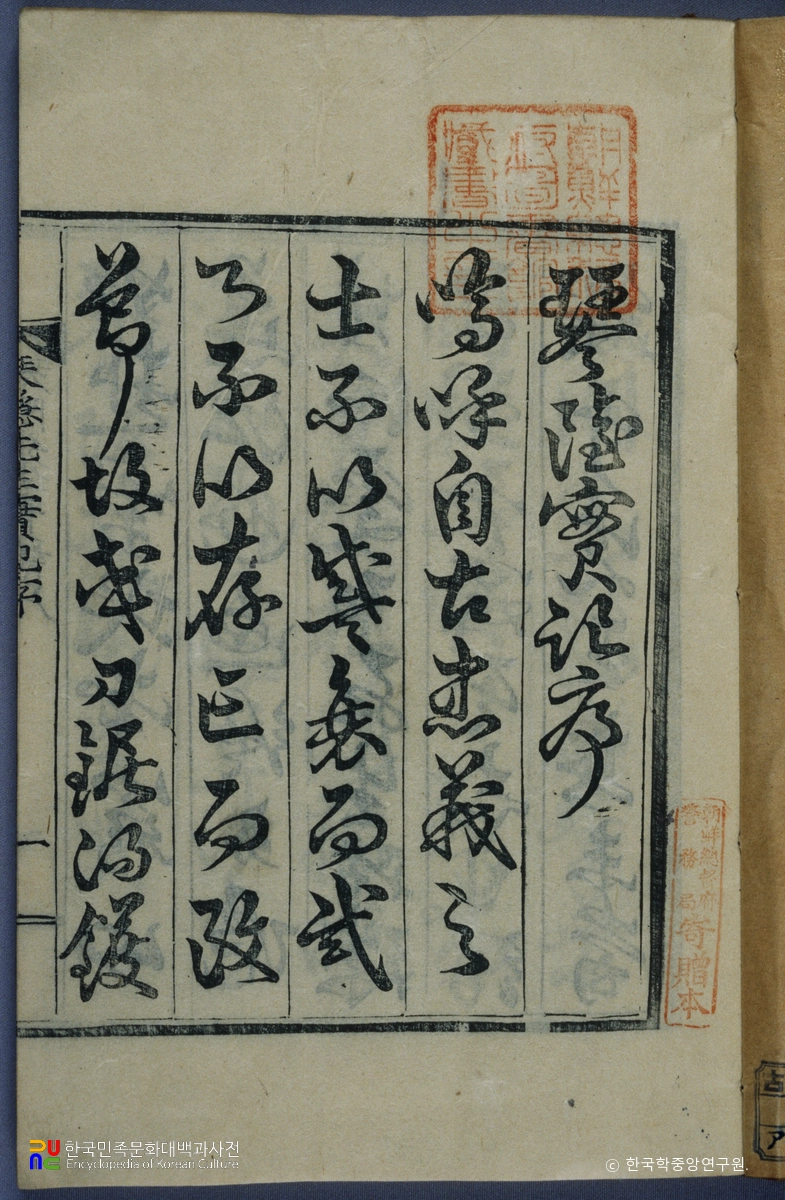 朝鮮總督府圖書館藏書之印
琴隱實記序
嗚呼自古忠義之
士不以盛衰而貳
心不以存亡而改
節故或刀鋸湯鑊
琴隱先生實記序
一
朝鮮總督府
警務局
寄贈本
한국민족문화대백과사전
Encyclopedia of Korean Culture
© 한국학중앙연구원.